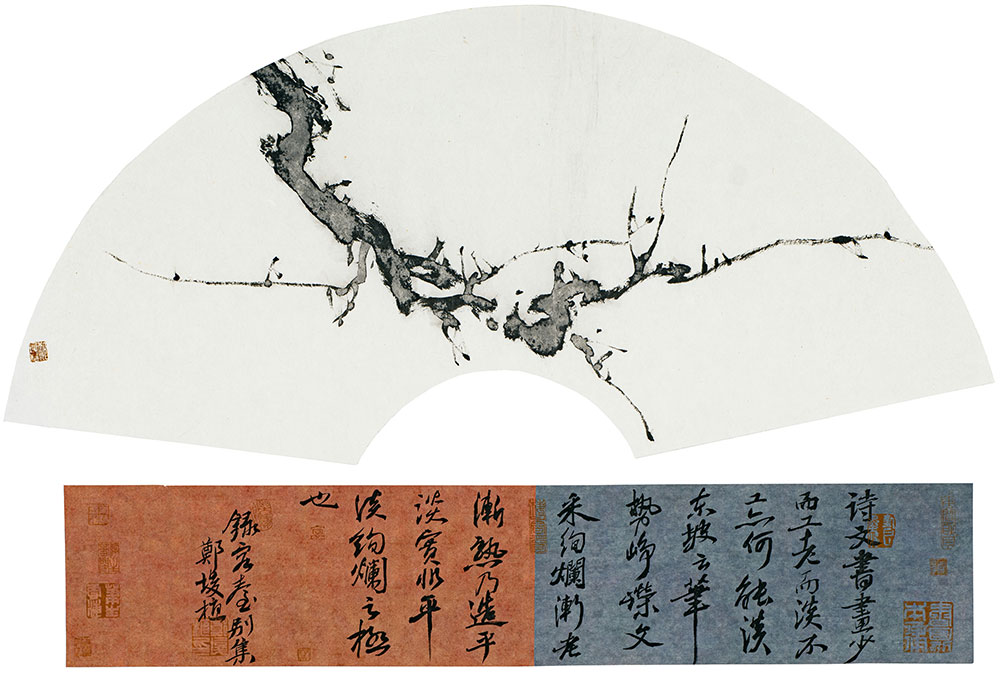 诗文書畫少
而工老而淡不
工亦何能淡
东坡云筆
勢崢嶸文
采绚爛漸老
漸熟乃造平
淡實非平
淡绚爛之極
也
錄容臺别集
鄭